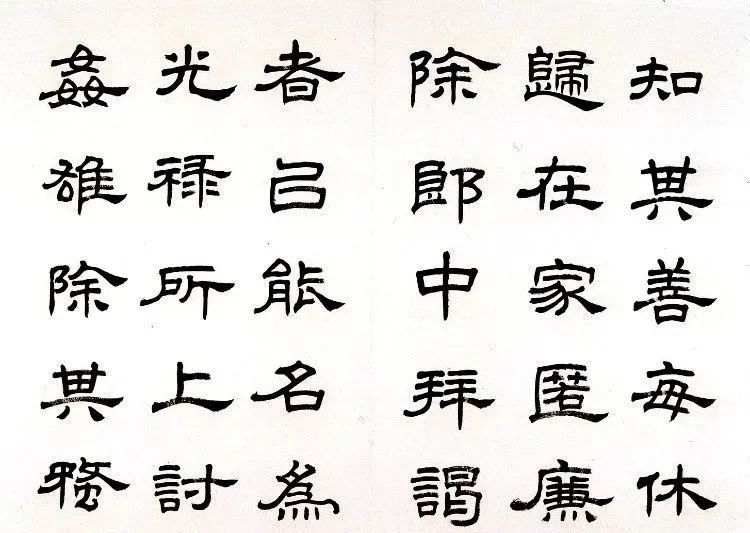 知其善每休
歸在家匿廉
除郎中拜謁
者㠯能名為
光禄所上討
姦雄除其蝥